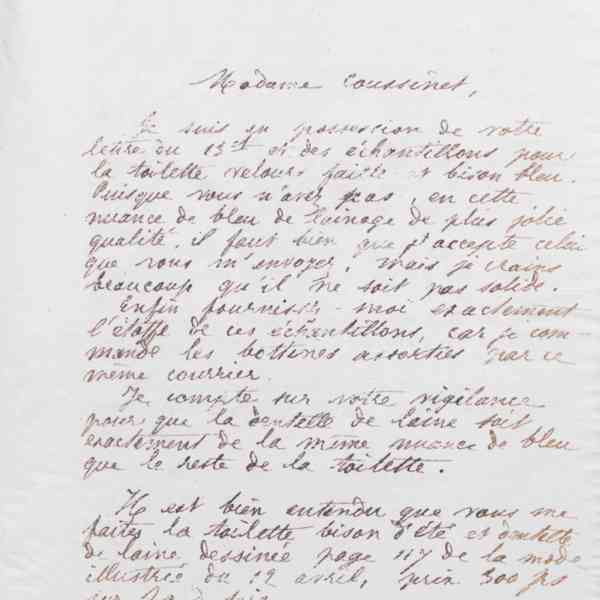 Madame Coussinet,
Je suis en possession de votre
lettre du 13 et et des échantillons pour
la toilette velours faille et bison bleu.
Puisque vous n'avez pas, en cette
nuance de bleu de lainage de plus jolie
qualité, il faut bien que j'accepte celui
que vous m'envoyez, mais je crains
beaucoup qu'il ne soit pas solide.
Enfin fournissez-moi exactement
l'étoffe de ces échantillons, car je com-
mande les bottines assorties par ce
même courrier.
Je compte sur votre vigilance
pour que la dentelle de laine soit
exactement de la même nuance de bleu
que le reste de la toilette.
Il est bien entendu que vous me
faites la toilette bison d'été et dentelle
de laine dessinée page 117 de la mode
illustrée du 12 avril, prix 300 frs
sur